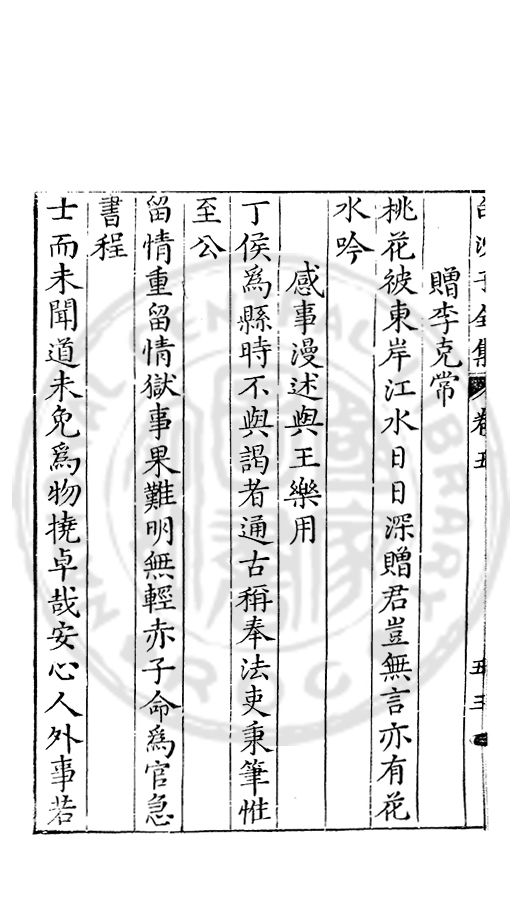 子全集 卷五 五三
贈李克常
桃花被東岸江水日日深贈君豈無言亦有花
水吟
感事漫述與王樂用
丁侯爲縣時不與謁者通古稱奉法吏秉筆惟
至公
留情重留情獄事果難明無輕赤子命爲官急
書程
士而未聞道未免爲物撓卓哉安心人外事若